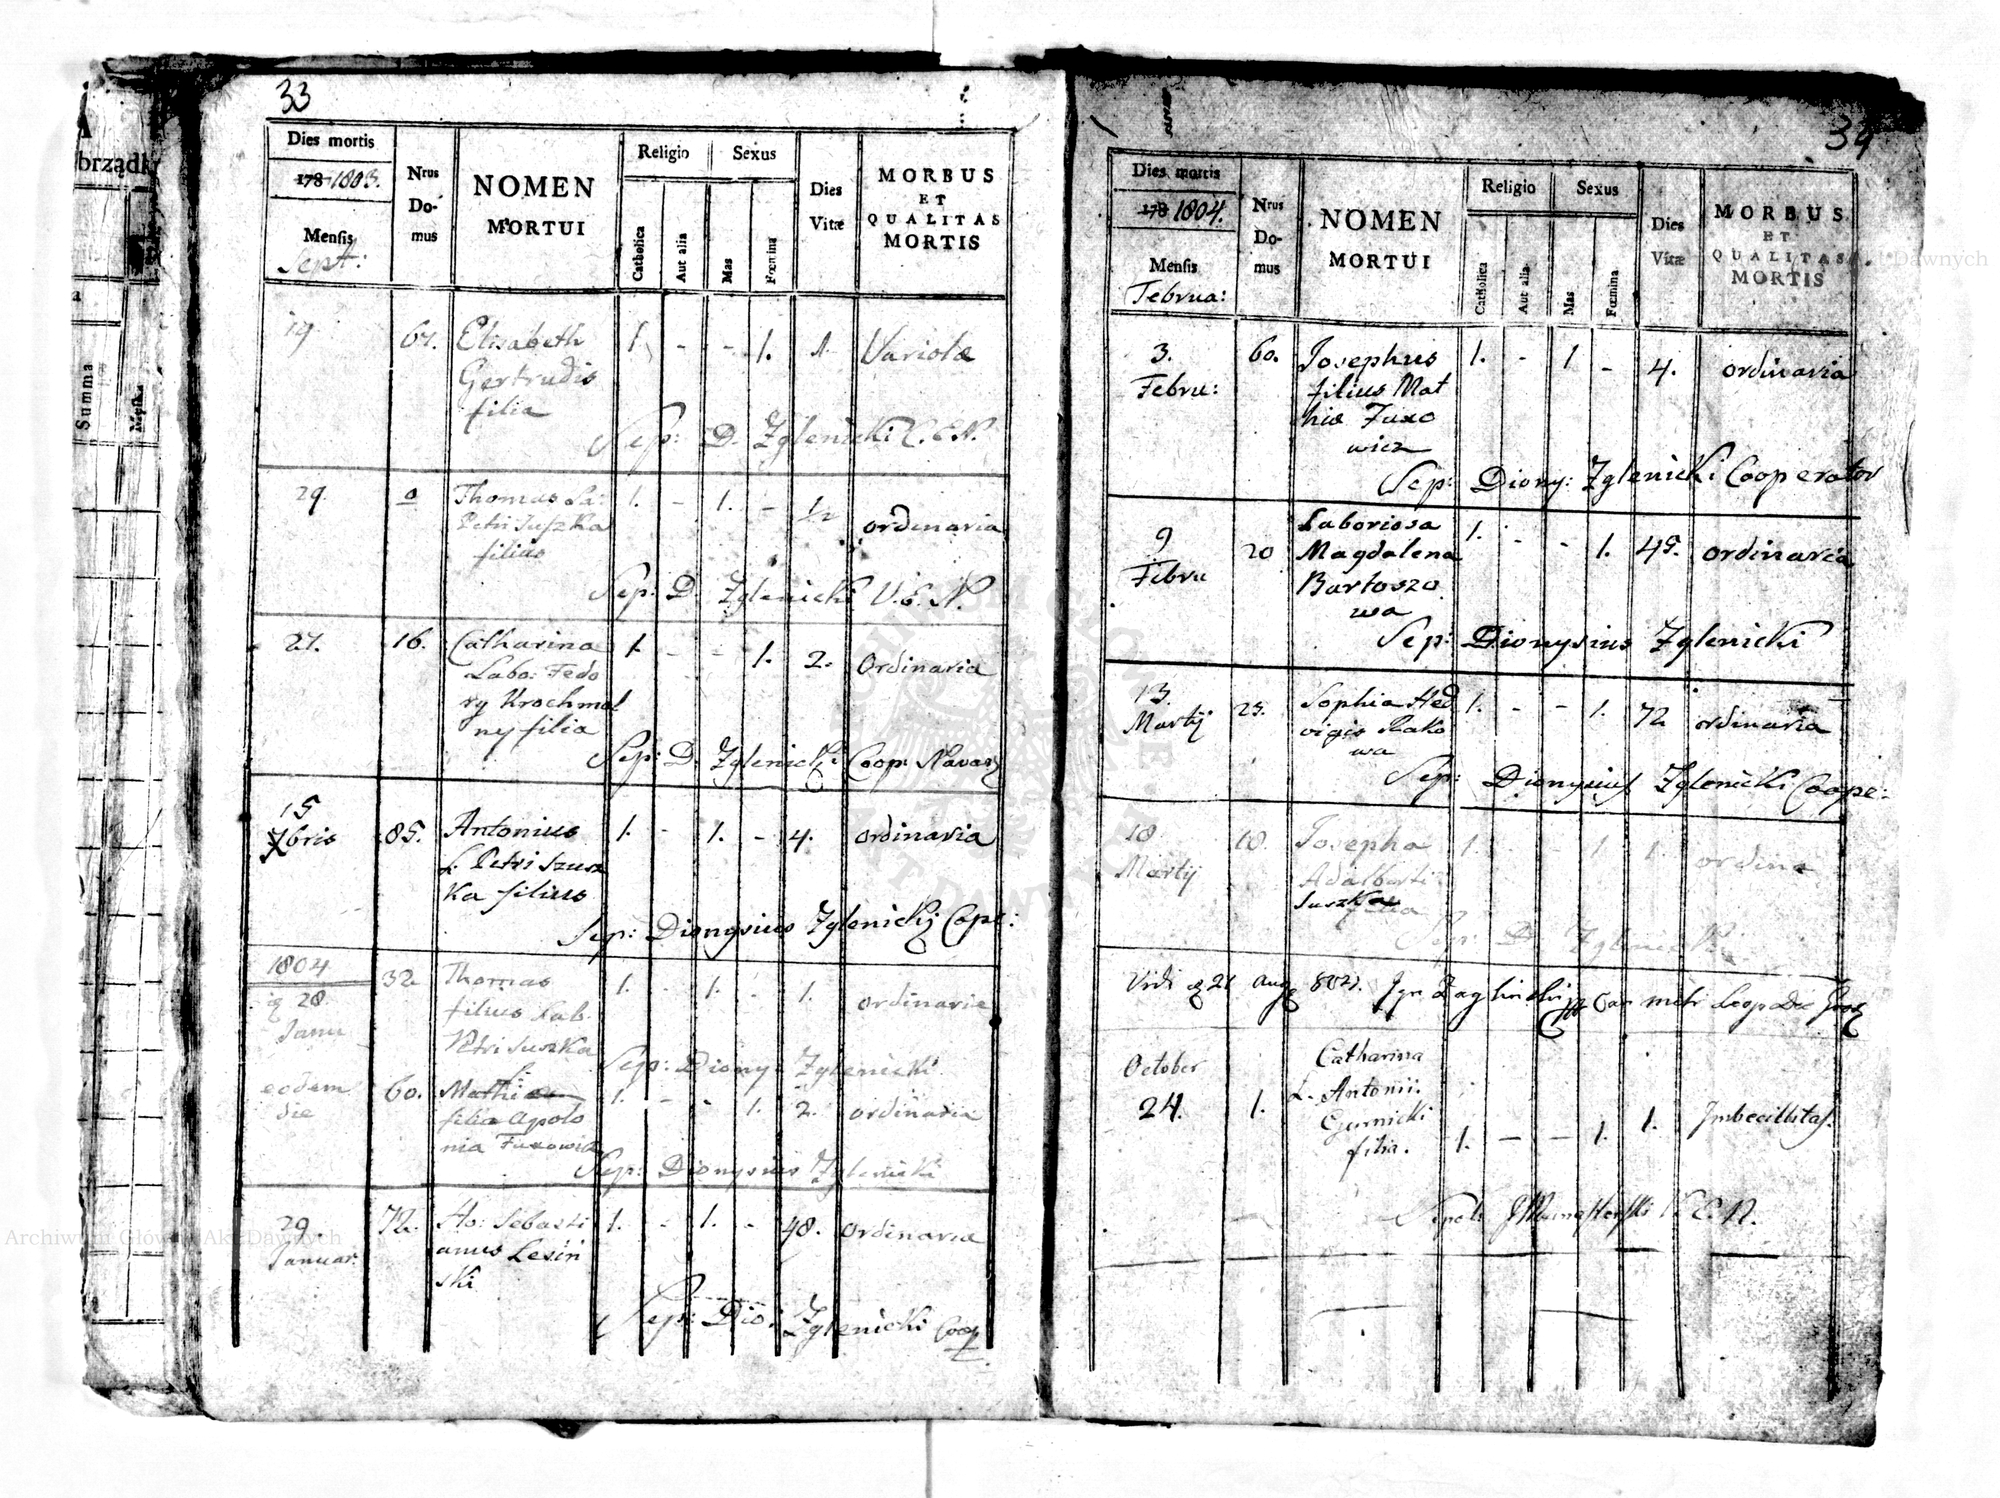 33
Dies mortis
178 1803.
Mensis
Sept:
Nrus Do- mus
NOMEN
MORTUI
Religio
Catholica
Aut alia
Sexus
Mas
Fœmina
Dies
Vitæ
MORBUS
ET
QUALITAS
MORTIS
19 Elisabeth 1. - - 1. 1. Variolæ
Gertrudis
filia
Sep: D. Zglenicki
29. Thomas La: 1. - 1. - ordinaria
Petri Suszka
filius
Sep: D. Zglenicki V. E. N.
27. 16. Catharina 1. - - 1. 2. Ordinaria
Labo: Fedo
ry Krochmal
ny filia
Sep: D. Zglenicki Coop:
15
Xbris 85. Antonius 1. - 1. - 4. ordinaria
L. Petri Szusz
ka filius
Sep: Dionysius Zglenicki Cope:
1804
28. 32 Thomas 1. - 1. - 1. ordinaria
Janu filius Lab.
Petri Suszka
Sep: Diony: Zglenicki
eodem 60. Mathi 1. - - 1. 2. ordinaria
die filia Apolo
nia Fuxowicz
Sep: Dionysius Zglenicki
29 72. Ho: Sebasti 1. - 1. - 48. Ordinaria
Januar. anus Lesiń
ski
Sep: Dio: Zglenicki Coop
34
Dies mortis
178 1804.
Mensis
Februa:
Nrus Do- mus
NOMEN
MORTUI
Religio
Catholica
Aut alia
Sexus
Mas
Fœmina
Dies
Vitæ
MORBUS
ET
QUALITAS
MORTIS
3. 60. Josephus 1. - 1 - 4. ordinaria
Febru: filius Mat
hiæ Fuxo
wicz
Sep: Diony: Zglenicki Cooperator
9 20 Laboriosa 1. - - 1. 45. ordinaria
Febru Magdalena
Bartoszo
wa
Sep: Dionysius Zglenicki
13. 25. Sophia Hed 1. - - 1. 72 ordinaria
Martij vigis
wa
Sep: Dionysius Zglenicki Coope:
18 18. Josepha 1. - - 1 1. ordina
Martij Adalberti
Suszka
filia
Sep: D. Zglenicki
Vidi
October Catharina
24. 1. L. Antonii 1. - - 1. 1. Imbecillitas.
Gurnicki
filia.